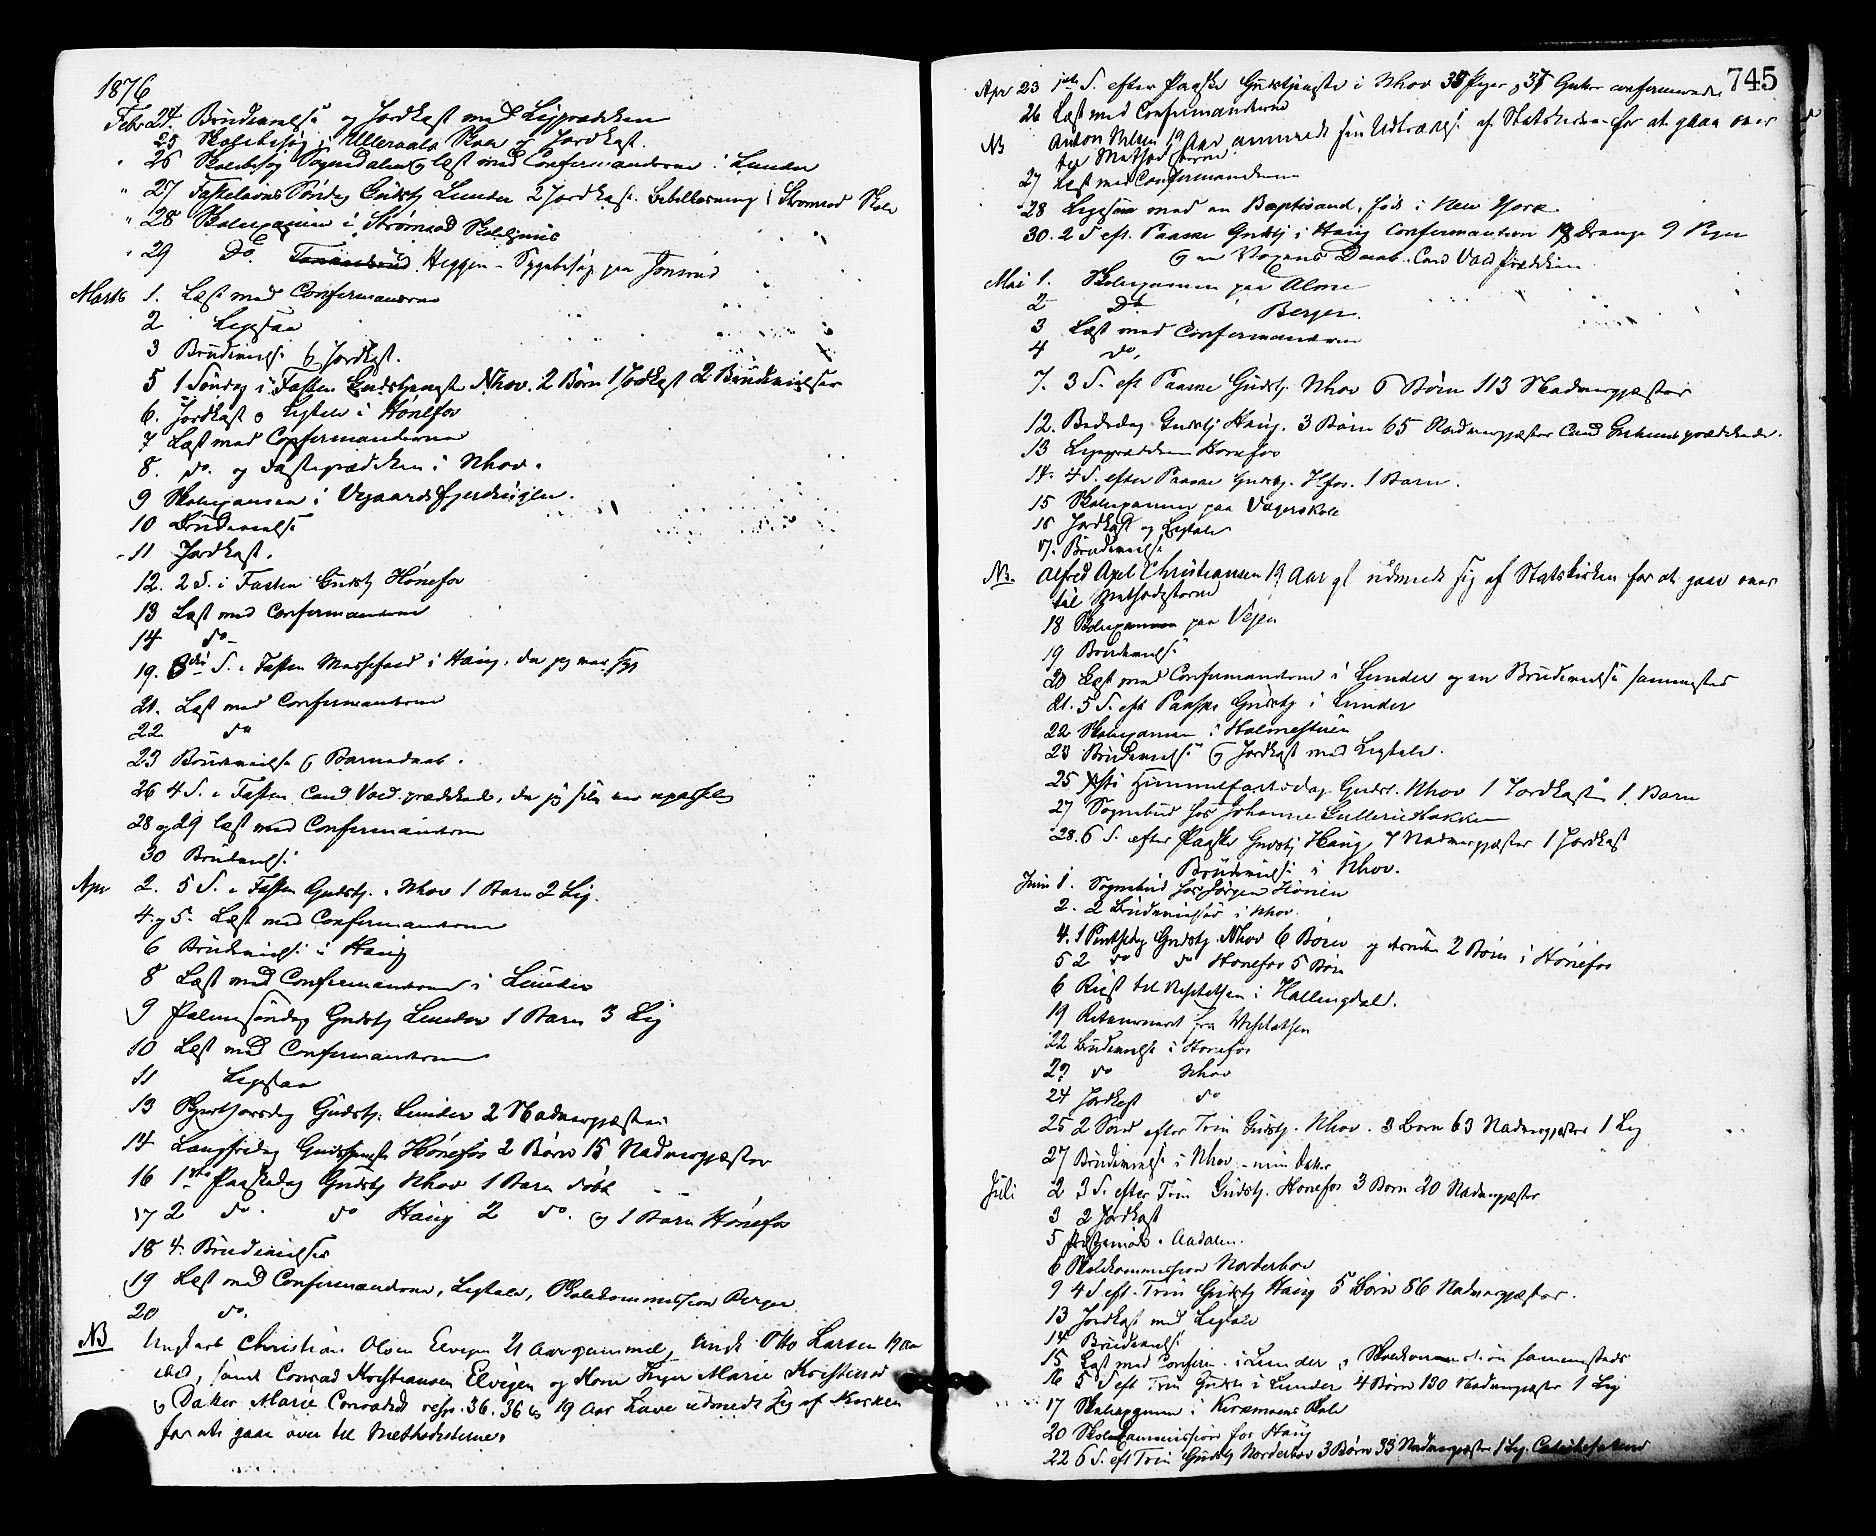 1876
Febr 24. Brudevielse og Jordkast med Ligprædiken
25 Skolebesøg i Ulleraals Skole og Jordkast.
" 26 Skolebesøg Sognedalen og læst med Confirmanderne i Lunder
" 27 Fastelavns Søndag Gudstj Lunder 2 Jordkast. Bibellæsning i Strømsod Skole
" 28 Skoleexamen i Strømsod Skolehuus
" 29 Do. Heggen - Sygebesøg paa
Marts 1. Læst med Confirmanderne
2 Ligstaa
3 Brudevielse og Jordkast.
5 1 Søndag i Fasten Gudstjeneste Nhov. 2 Børn 1 Jordkast 2 Brudevielser
6. Jordkast o Ligtale i Hønefos
7 Læst med Confirmanderne
8. do. og Fasteprædiken i Nhov.
9 Skoleexamen i Vegaardsfjerdingen.
10 Brudevielse
11 Jordkast.
12. 2 S. i Fasten Gudstj Hønefos
13 Læst med Confirmanderne
14 do
19. 3die S. i Fasten Messefald i Haug, da jeg var syg
21. Læst med Confirmanderne
22 do
23 Brudevielse og Barnedaab.
26 4 S. i Fasten Cand Vold prædikede, da jeg selv var upasselig
28 og 29 læst med Confirmanderne
30 Brudevielse
Apr 2. 5 S. i Fasten Gudstj. i Nhov 1 Barn 2 Lig.
4. og 5. Læst med Confirmanderne
6 Brudevielse i Haug
8 Læst med Confirmanderne i Lunder
9 Palmesøndag Gudstj Lunder 1 Barn 3 Lig
10 Læst med Confirmanderne
11 Ligstaa
13 Skjærthorsdag Gudstj. Lunder 2 Nadvergjæster
14 Langfredag Gudstjeneste Hønefos 2 Børn 15 Nadvergjæster
16 1ste Paaskedag Gudstj Nhov 1 Barn døbt
17 2 do. do Haug 2 do. og 1 Barn Hønefos
18 4. Brudevielser
19 Læst med Confirmanderne, Ligtale, Skolekommission Berger
20 do.
NB Ungkarl Christian Olsen Elvigen 21 Aar gammel, Ungk Otto Larsen 19 Aar
ibid, samt Conrad Kristiansen Elvigen og Kone Inger Marie Kristiansd
o Datter Marie Conradsd resp. 36. 36 og 19 Aar Lave udmeldt sig af Kirken
for at gaae over til Methodisterne.
745
Apr 23 1ste S. efter Paaske Gudstjeneste i Nhov Piger o 37 Gutter confirmerede
26 Læst med Confirmanderne
NB Anton Nilsen 19 Aar anmeldt sin Udtrædelse af Statskirken for at gaa over
til Methodisterne
27 Læst med Confirmanderne
28 Ligstaa med en Baptisand, født i New York
30. 2 S. eft. Paaske Gudstj i Haug Confirmantion 18 Drenge 9 Piger
o en Voxens Daab. Cand Vold prædiken
Mai 1. Skoleexamen paa Alme
2 Do Berger.
3 Læst med Confirmanderne
4 do.
7. 3 S. eft Paaske Gudstj. Nhov 6 Børn 113 Nadvergjæster
12. Bededag Gudstj Haug. 3 Børn 65 Nadvergjæster Cand prædikede.
13 Ligprædiken Hønefos
14. 4 S. efter Paaske Gudstj. Hfos. 1 Barn.
15 Skoleexamen paa Vagerskole
16 Jordkast og Ligtale
17. Brudevielse
NB. Alfred Axel Christiansen 19 Aar gl udmeldt sig af Statskirken for at gaae over
til Methodisterne
18 Skoleexamen paa Vejen
19 Brudevielse
20 Læst med Confirmanderne i Lunder og en Brudevielse sammesteds
21. 5 S. eft Paaske Gudstj i Lunder
22 Skoleexamen i Halmestuen
23 Brudevielse og Jordkast med Ligtale.
25 Kristi Himmelfartsdag Gudst. Nhov 1 Jordkast 1. Barn
27 Sognebud hos Johanne Gulleriehakken
28. 6 S. efter Paaske Gudstj Haug, 7 Nadvergjæster 1 Jordkast
Brudevielse i Nhov.
Juni 1. Sognebud hos Jørgen Hønen
2. 2 Brudevielser i Nhov
4. 1 Pintsedag Gudstj. Nhov 6 Børn og desuden 2 Børn i Hønefos
5 2 do do Hønefos 5 Børn
6 Reist til Visitatsen i Hallingdal.
19 Returneret fra Visitatsen
22 Brudevielse i Hønefos
23 do Nhov
24 Jordkast do
25 2 Sønd efter Trin Gudstj. Nhov. 3 Børn 63 Nadvergjæster 1 Lig
27 Brudevielse i Nhov - min Datter
Juli 2 3 S. efter Trin Gudstj. Hønefos 3 Børn 20 Nadvergjæster
3 2 Jordkast
5 Aadalen.
6 Skolekommission Norderhov
9 4 S eft. Trin Gudstj Haug 5 Børn 86 Nadvergjæster.
13 Jordkast med Ligtale
14 Brudevielse
15 Læst med Confirm. i Lunder, o Skolekommission sammesteds
16 5 S eft Trin Gudstj i Lunder 4 Børn 130 Nadvergjæster 1 Lig
17 Skoleexamen i Kirkemoens Skole
20 Skolekommission for Haug
22 6 S. eft Trin Gudstj Norderhov 3 Børn 33 Nadvergjæster 1 Lig.